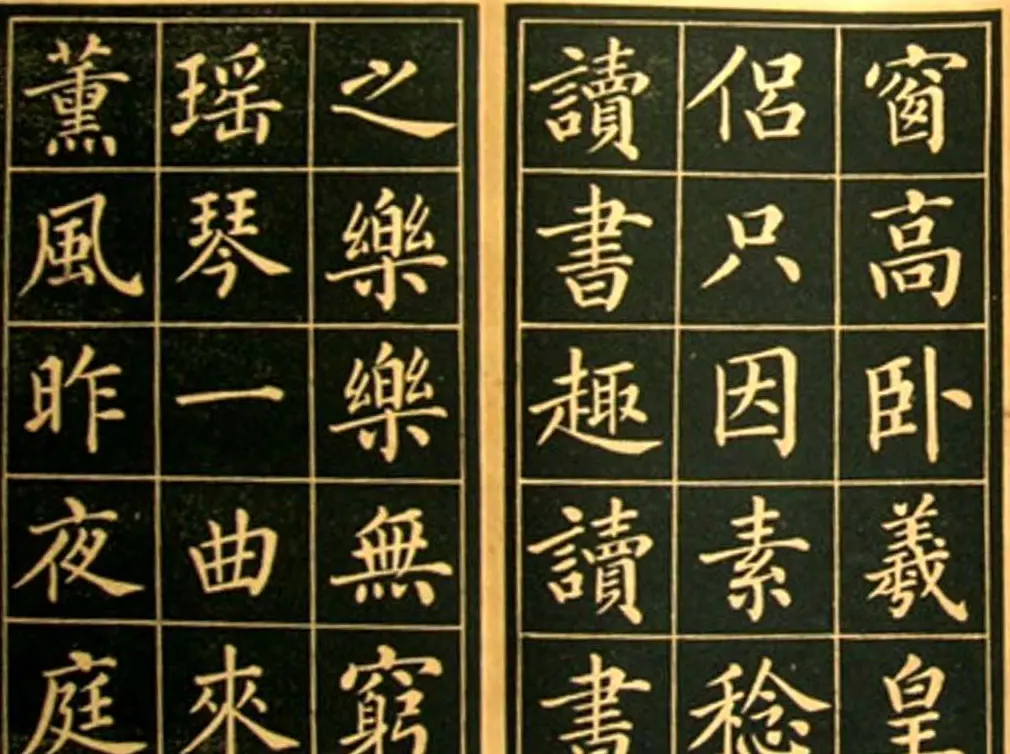 窗高卧羲皇
侣只因素稔
讀書趣讀書
之樂樂無窮
瑶琴一曲來
薰風昨夜庭